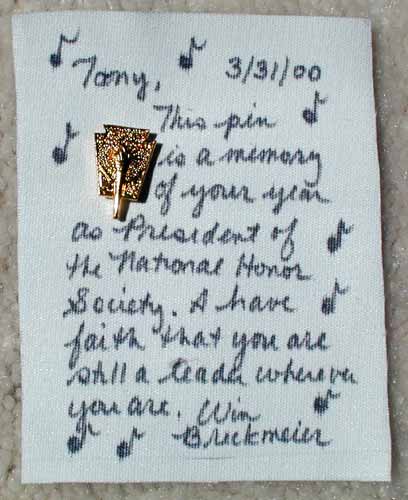 Tony, 3/31/00
This pin
is a memory
of your year
as President of
the National Honor
Society. I have
faith that you are
still a leader wherever
you are. Win
Brickmeier